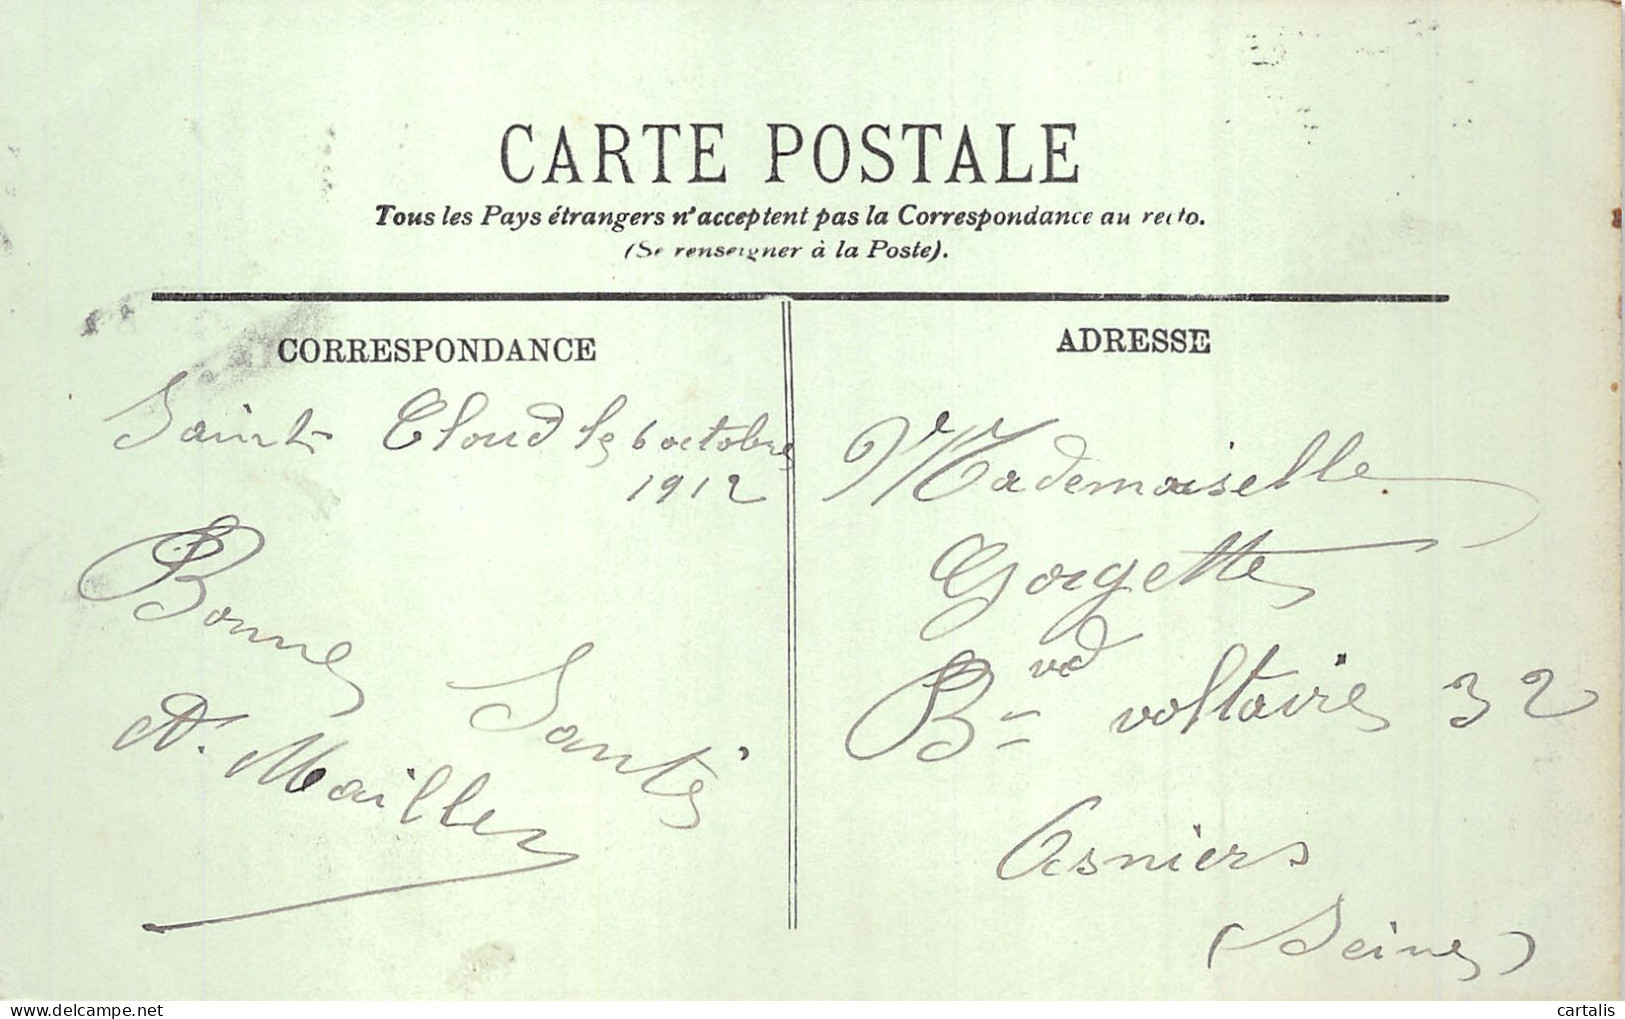 CARTE POSTALE
Tous les Pays étrangers n'acceptent pas la Correspondance au recto.
(Se renseigner à la Poste).
CORRESPONDANCE
Saint Cloud le 6 octobre
1912
Bonne Santé
A. Mailley
ADRESSE
Mademoiselle
Gorgette
Bvd voltaire 32
Asniers
(Seine)
cartalis